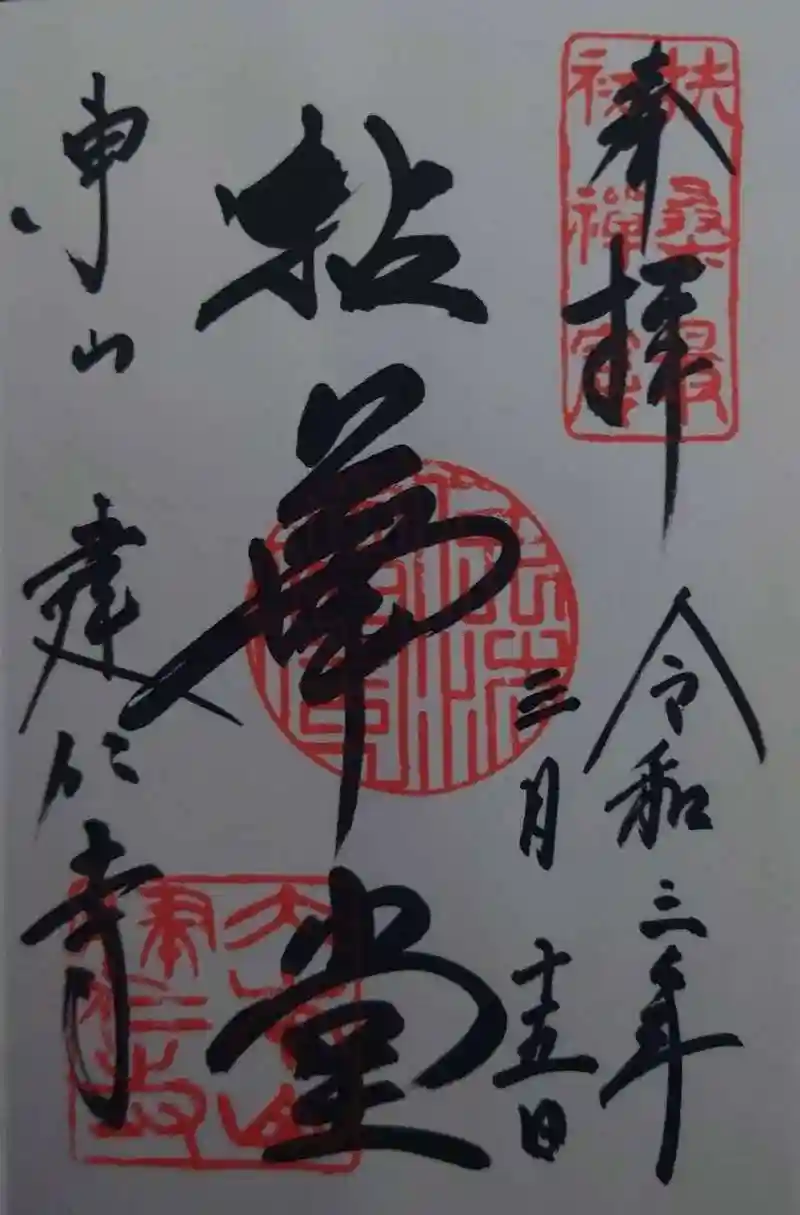 奉拝
扶桑最
初禅窟
令和三年
三月十五日
拈華堂
東山 建仁寺
大本山
建仁寺